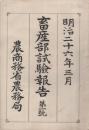 明治二十六年三月
畜産部試験報告 第一號
農商務省農務局